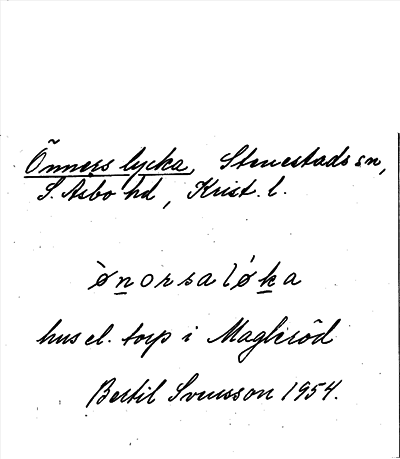 Önners lycka, Stenestads sn,
S. Åsbo hd, Krist. l.
ò̀norsalǿka
hus el. torp i Maglaröd
Bertil Svensson 1954.